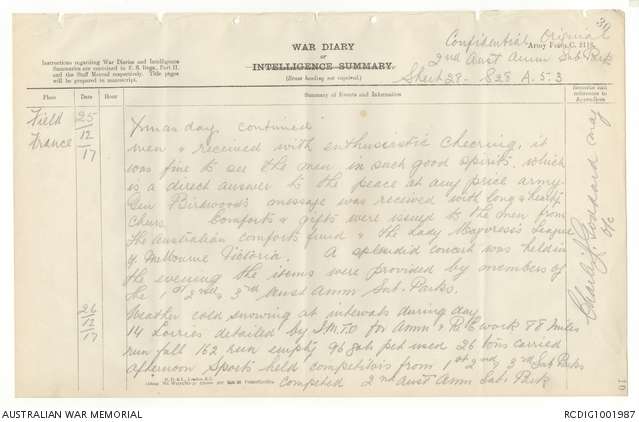 34
Confidential Original
Army Form C. 2118.
WAR DIARY
or
INTELLIGENCE SUMMARY.
(Erase heading not required).
2nd Aust Amm Sub Park
Sheet 28. 828 A.5.3
Instructions regarding War Diaries and Intelligence
Summaries are contained in F. S. Regs., Part II.
and the Staff Manual respectively. Title pages
will be prepared in manuscript.
Place
Date
Hour
Summary of Events and Information
Remarks and
references to
Appendices
Field
France
25/12/17
Xmas day continued
men & received with enthusiastic cheering, it
was fine to see the men in such good spirits, which
is a direct answer to the peace at any price army.
Gen Birdwood's message was received with long & hearty
cheers. Comforts & gifts were issued to the men from
the Australian comforts fund & the Lady Mayoress's League
of Melbourne Victoria. A splendid concert was held in
the evening the items were provided by members of
the 1st 2nd & 3rd Aust Amm Sub Parks.
26/12/17
Weather cold snowing at intervals during day
14 Lorries detailed by S.M.T.O for Amm & R.E work 78 miles
run full 162 run empty 96 gals pet used 26 tons carried
afternoon Sports held competitors from 1st 2nd & 3rd Sub Parks
competed 2nd Aust Amm Sub Park
Charles J. Goddard Maj
O/C
AUSTRALIAN WAR MEMORIAL
RCDIG1001987